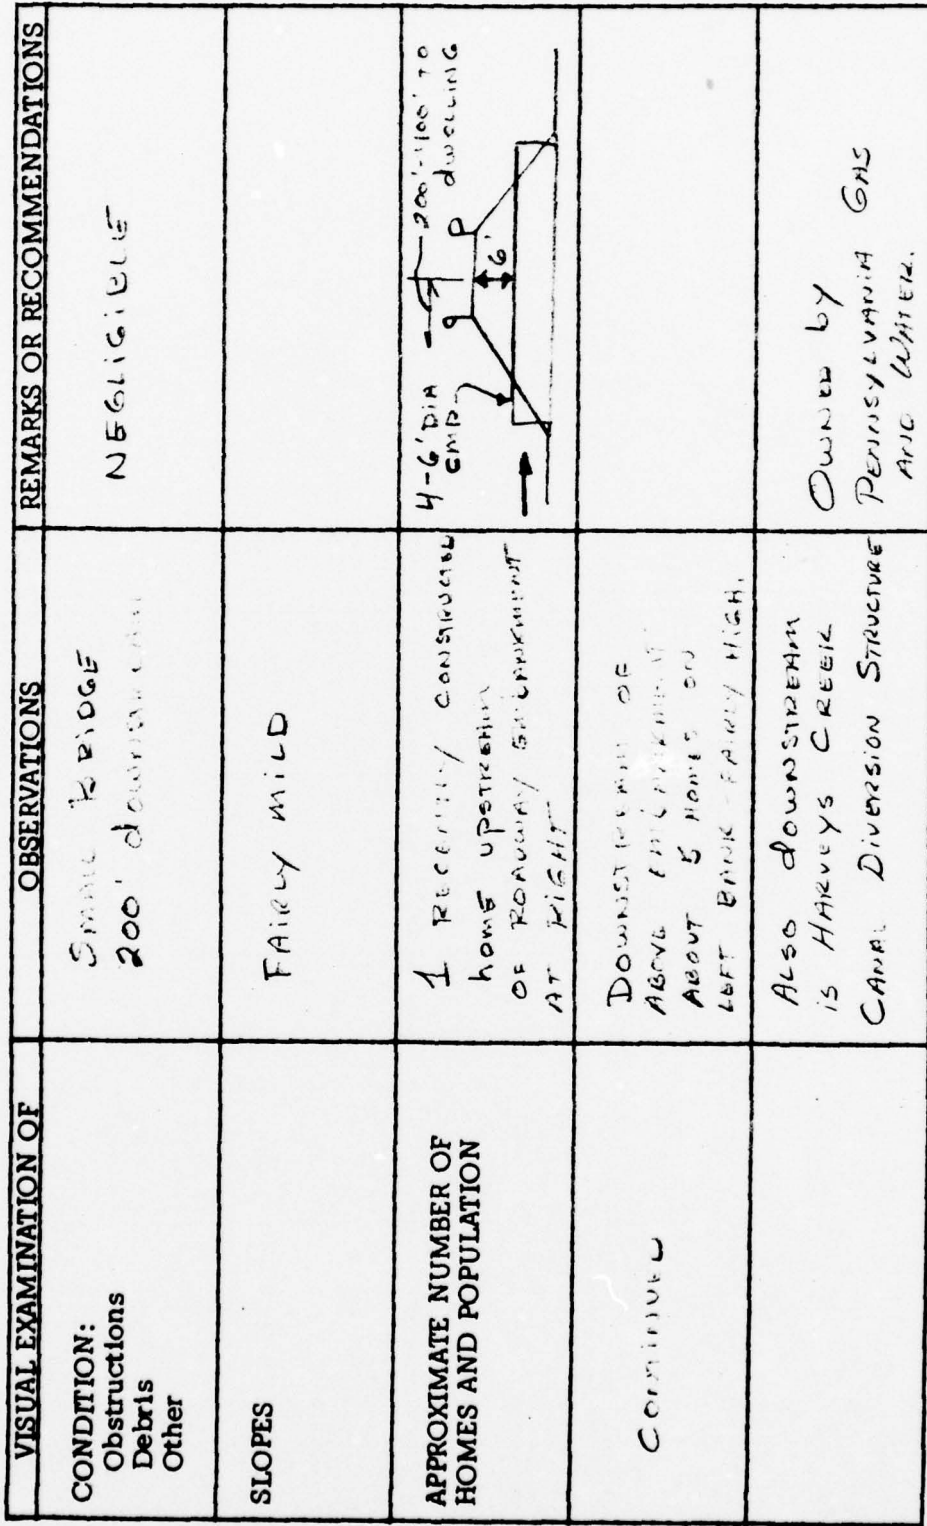 VISUAL EXAMINATION OF
OBSERVATIONS
REMARKS OR RECOMMENDATIONS
CONDITION:
Obstructions
Debris
Other
SMALL BRIDGE
200' downstream
NEGLIGIBLE
SLOPES
FAIRLY MILD
APPROXIMATE NUMBER OF
HOMES AND POPULATION
1 RECENTLY CONSTRUCTED
home UPSTREAM
OF ROADWAY EMBANKMENT
AT RIGHT
4-6' DIA
CMP
200'-400' TO
dwELLING
6'
CONTINUED
DOWNSTREAM OF
ABOVE EMBANKMENT
ABOUT 5 HOMES ON
LEFT BANK-FAIRLY HIGH.
ALSO downSTREAM
is HARVEYS CREEK
CANAL DIVERSION STRUCTURE
OWNED by
PENNSYLVANIA GAS
AND WATER.